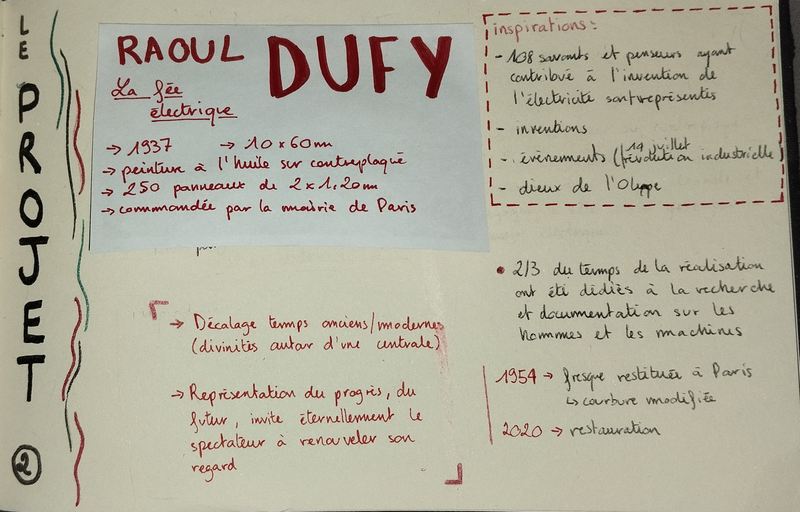 LE PROJET 2
RAOUL DUFY
La fée
électrique
→ 1937 → 10 x 60 m
→ peinture à l'huile sur contreplaqué
→ 250 panneaux de 2 x 1,20 m
→ commandée par la mairie de Paris
→ Décalage temps anciens/modernes
(divinités autour d'une centrale)
→ Représentation du progrès, du
futur, invite éternellement le
spectateur à renouveler son
regard
inspirations:
- 108 savants et penseurs ayant
contribué à l'invention de
l'électricité sont représentés
- inventions
14 juillet
- évènements (révolution industrielle)
- dieux de l'Olympe
• 2/3 du temps de la réalisation
ont été dédiés à la recherche
et documentation sur les
hommes et les machines
1954 → fresque restituée à Paris
↳ courbure modifiée
2020 → restauration